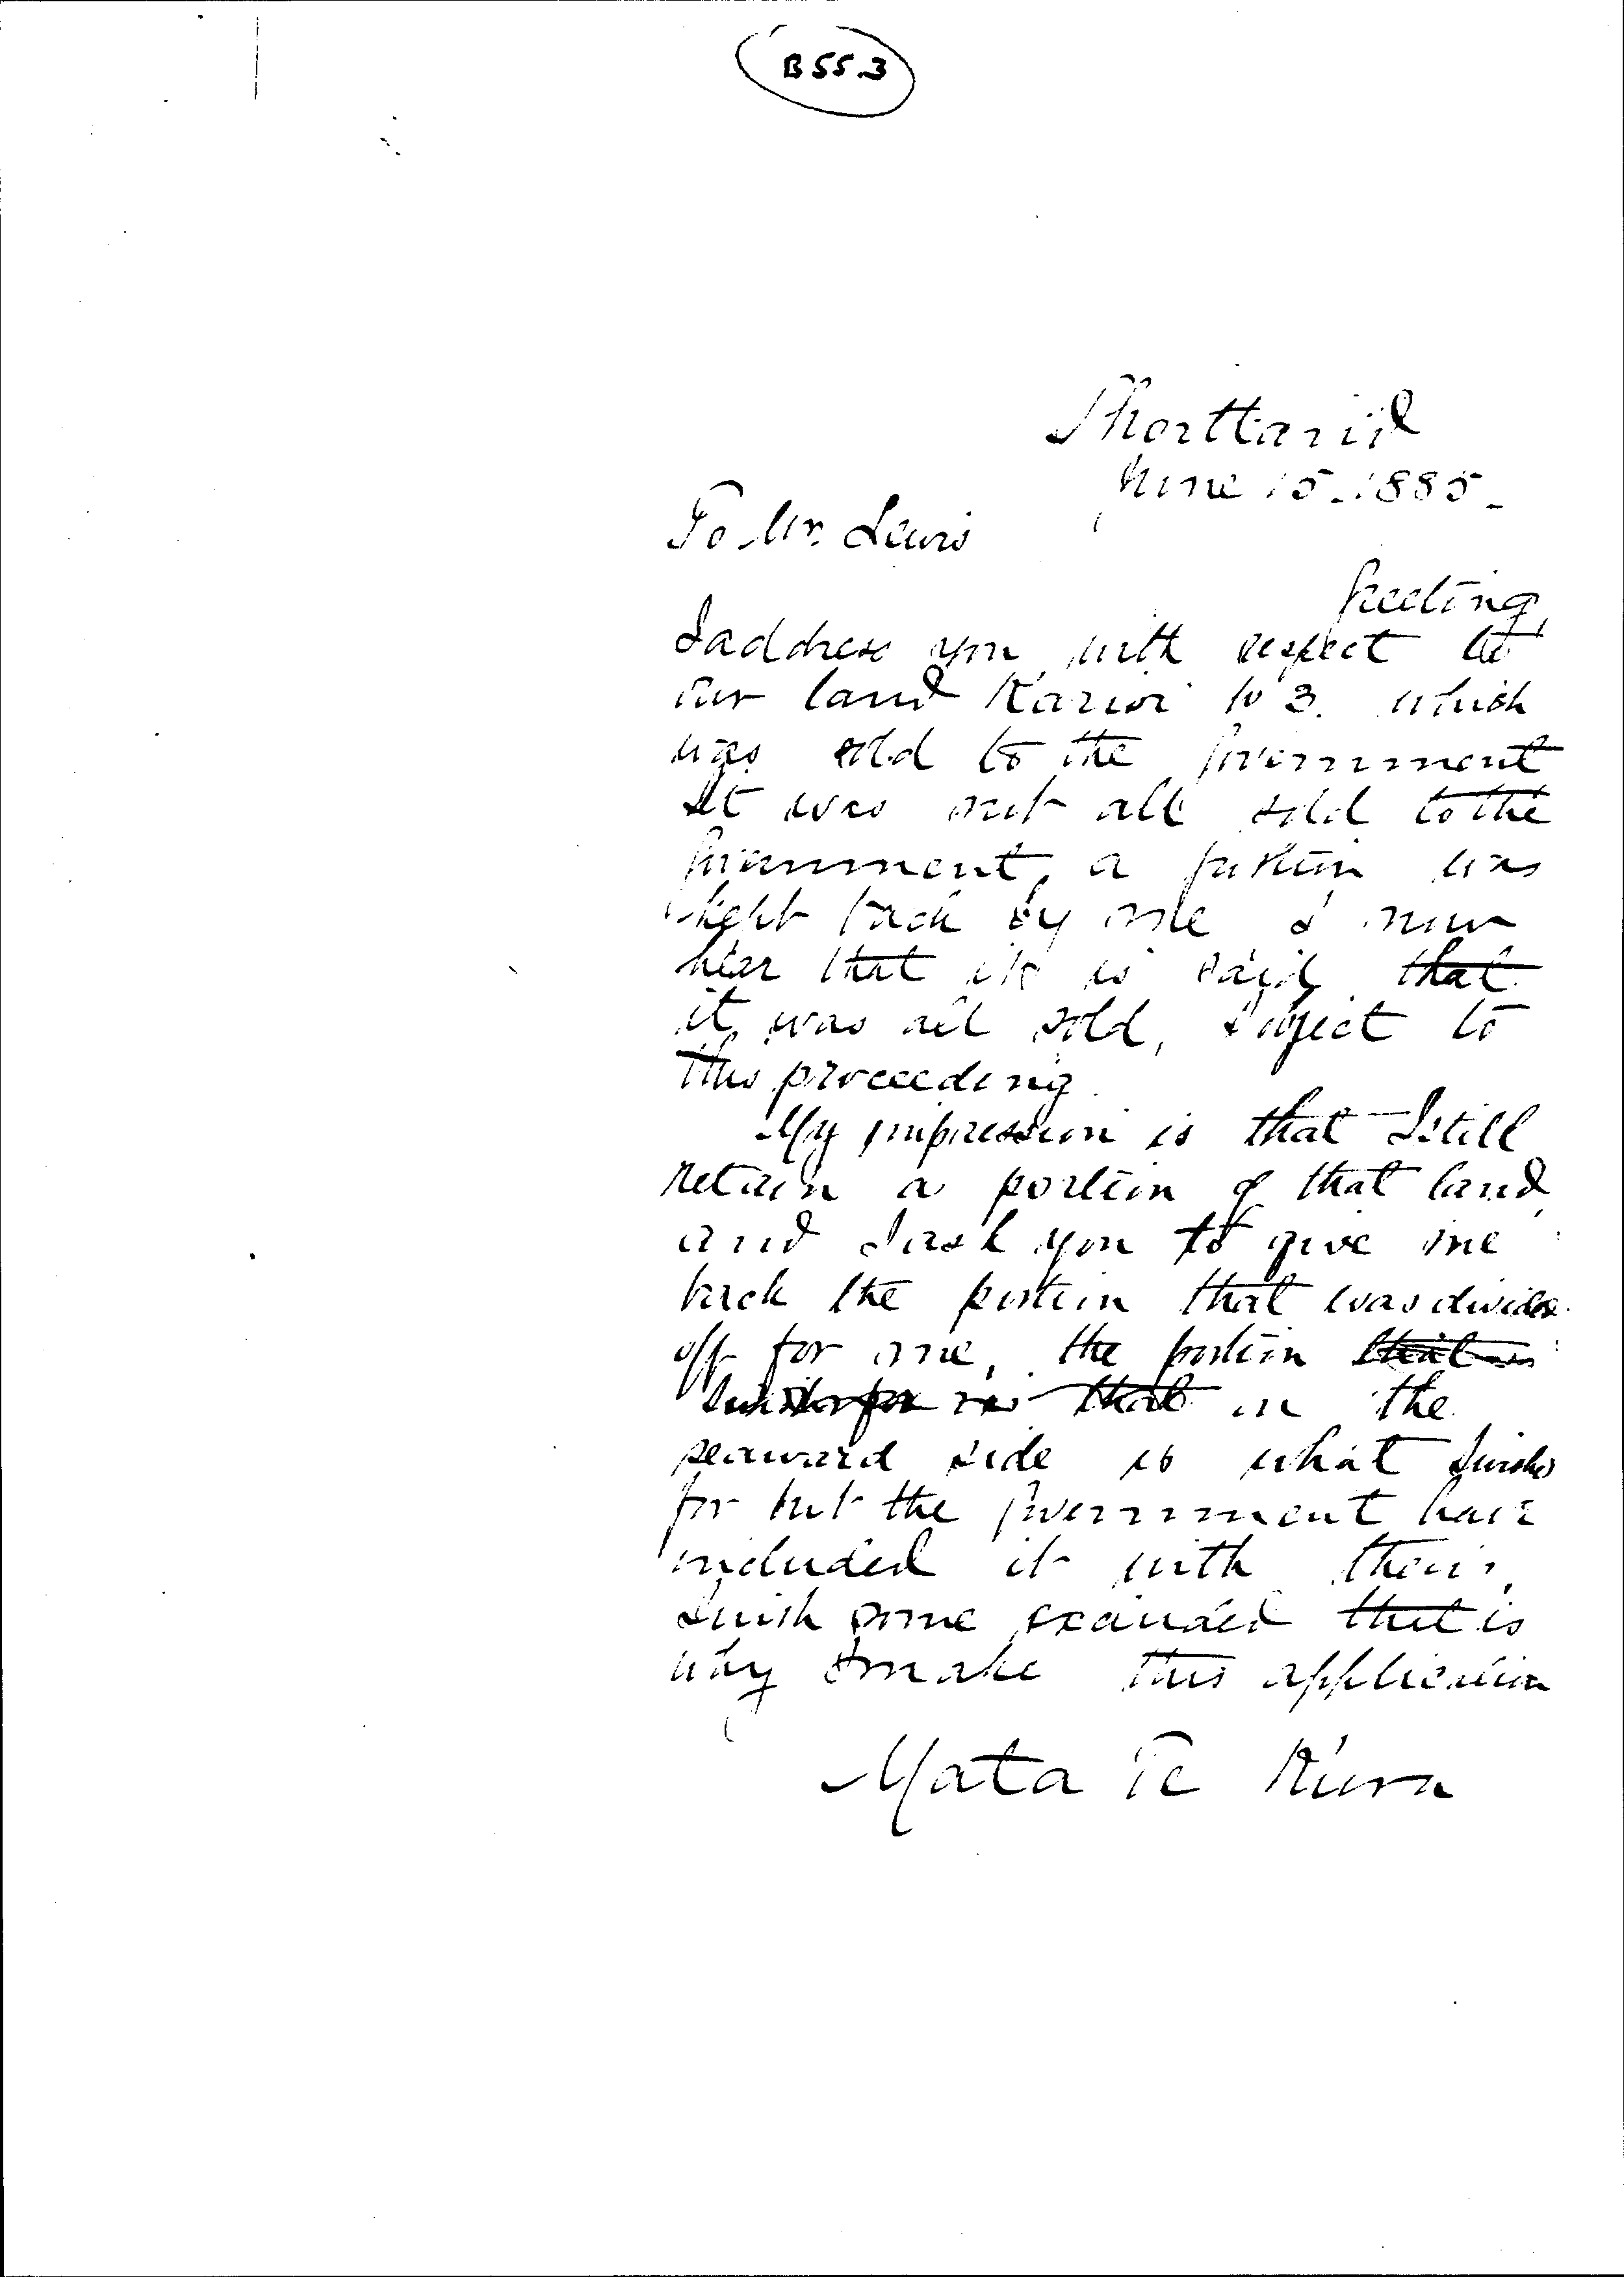 B55.3
Shortland
June 15. 1885.
To Mr. Lewis
Greeting,
I address you with respect to
our land Karioi No 3. which
was sold to the Government
It was not all sold to the
Government, a portion was
kept back by me I now
hear that it is said that
it was all sold, I object to
this proceeding.
My impression is that I still
retain a portion of that land,
and I ask you to give me
back the portion that was divided
off for me, the portion that is
I wish for is that in the
seaward side is what I wish
for but the Government have
included it with theirs,
I wish some
that is
why I make this application
Mata Te Kura